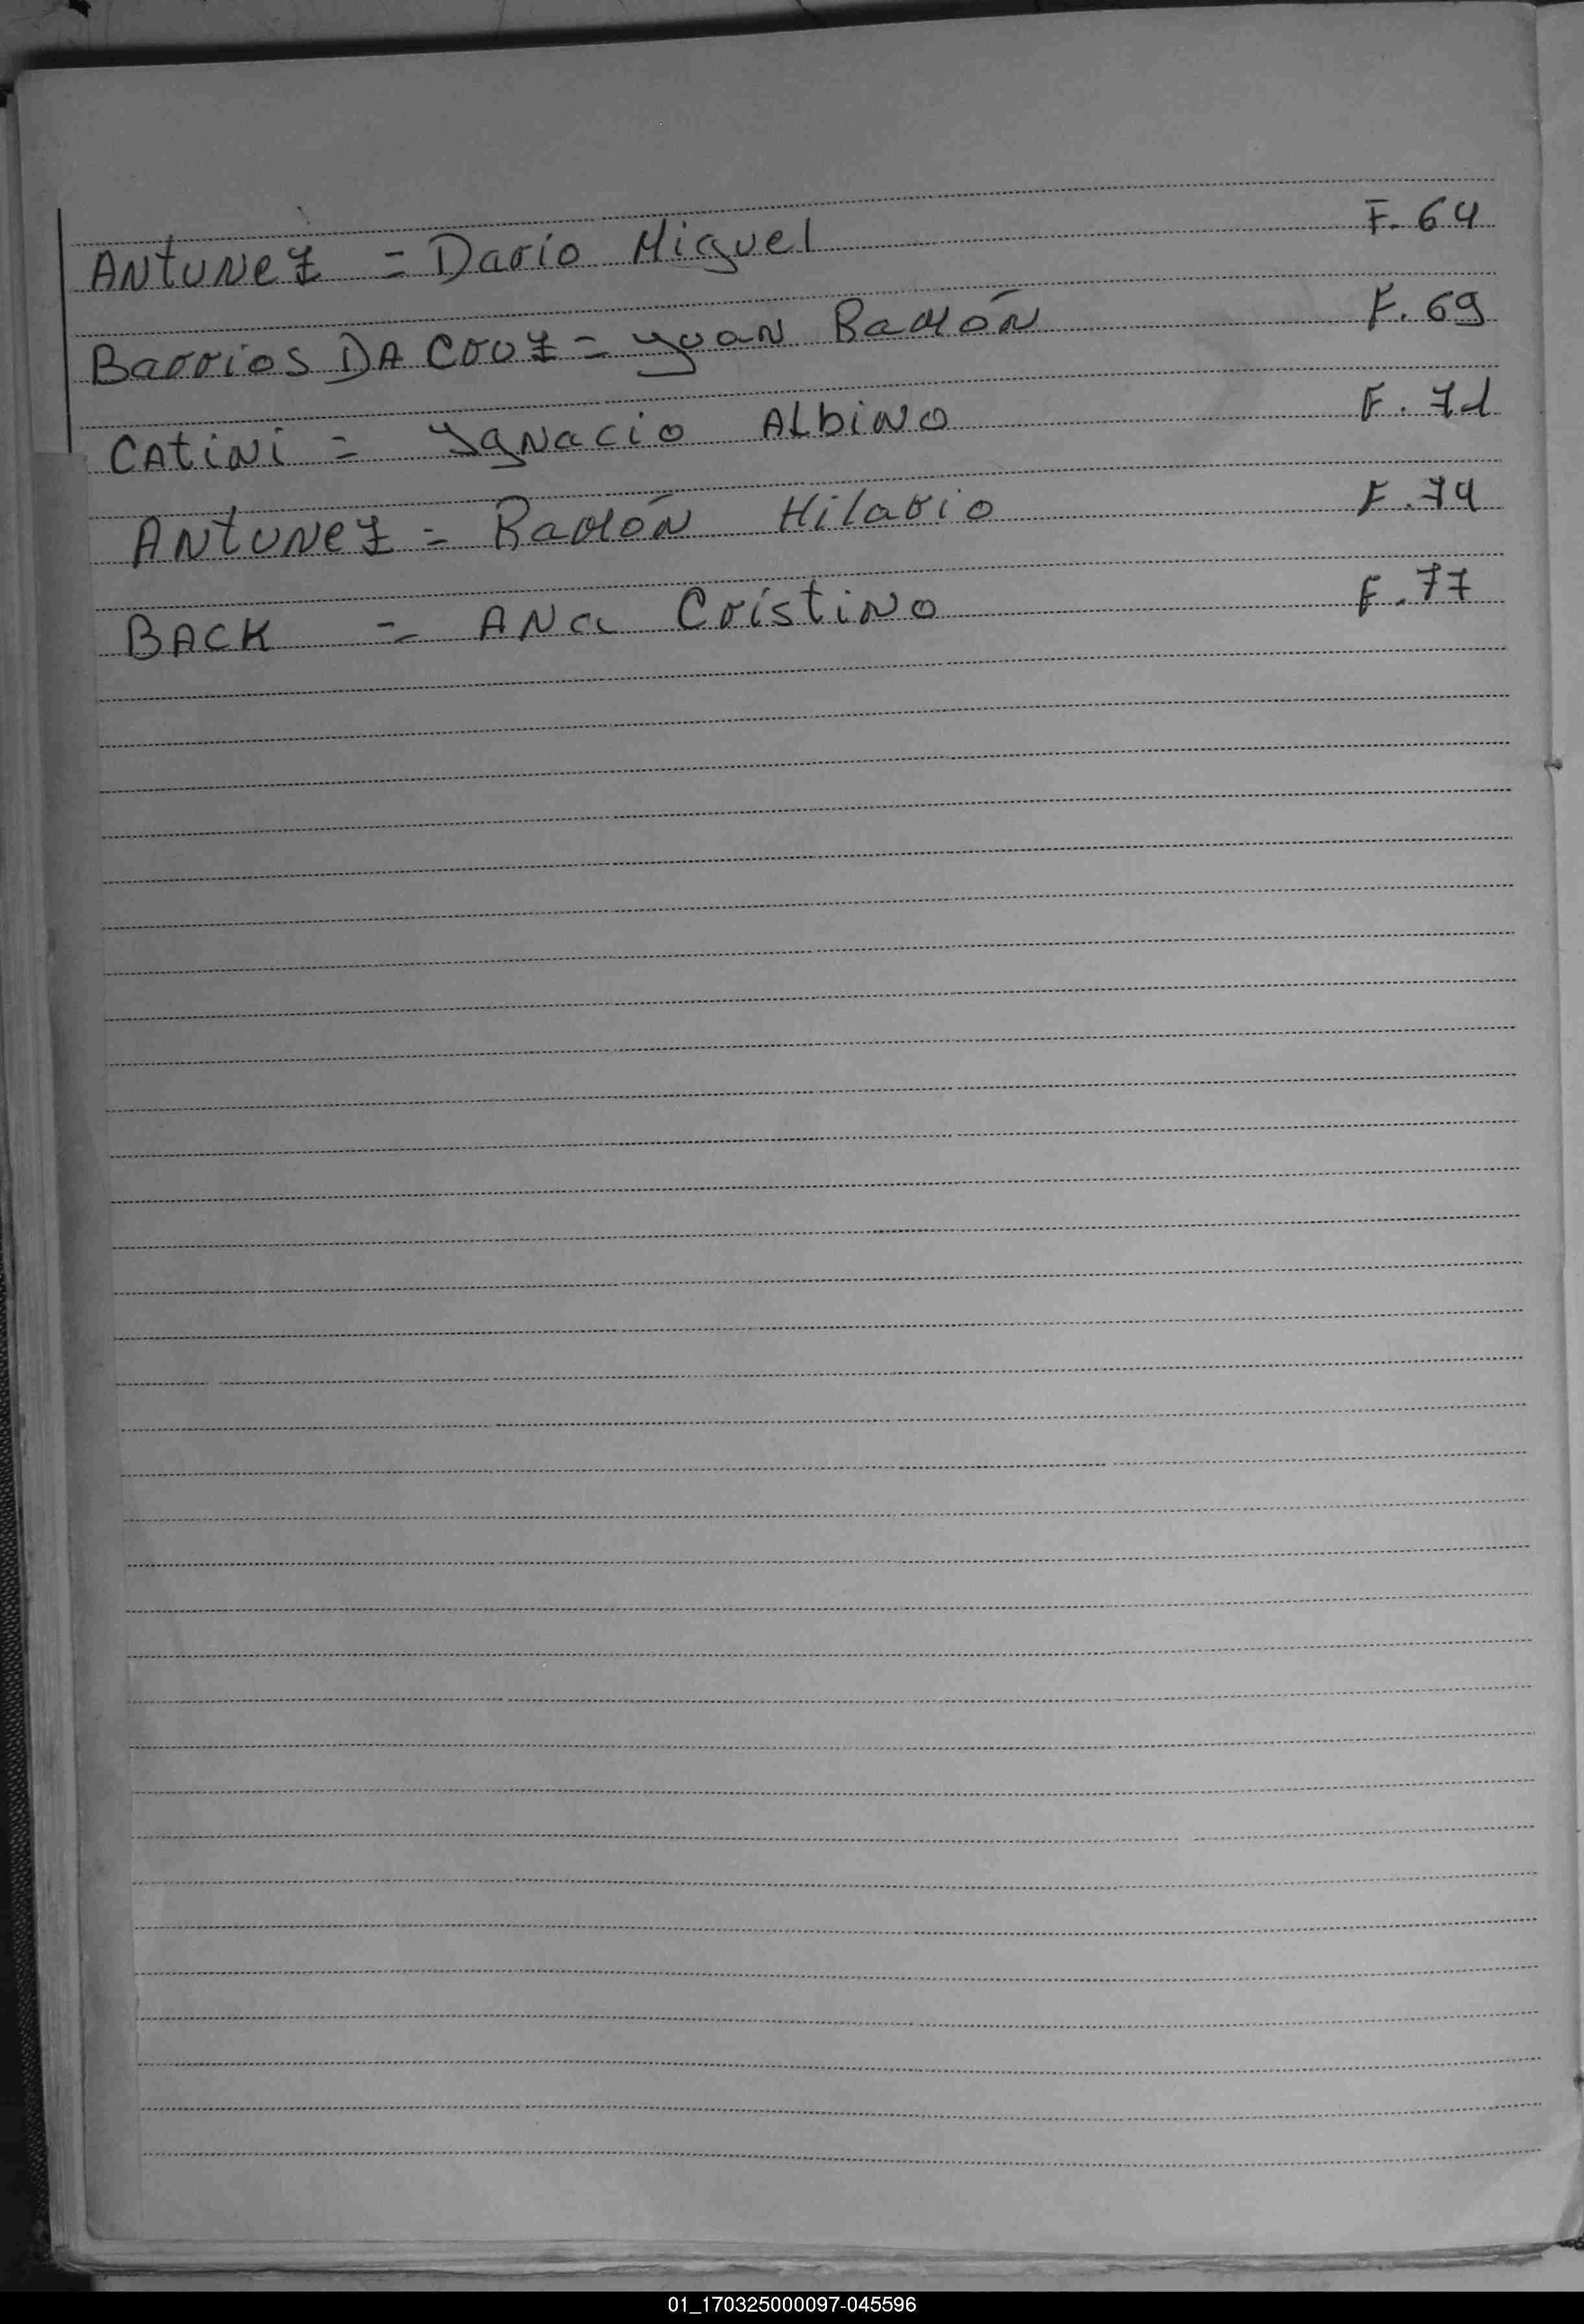 ANtUNez = Dario Miguel F. 64
Barrios DA Cruz = Yuan Ramón F. 69
CAtiNi = YgNacio ALbiNO F. 71
ANtUNez = Ramón Hilario F. 74
BACK = ANa CristiNo F. 77
01_170325000097-045596